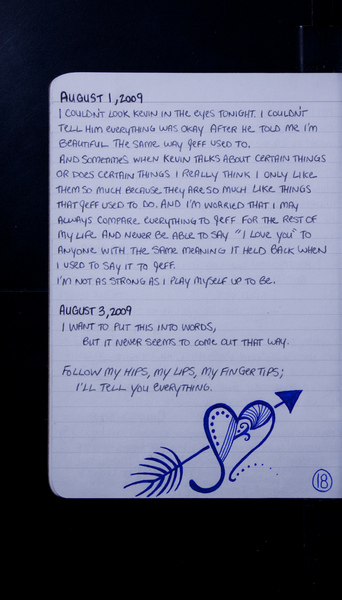 AUGUST 1, 2009
I COULDN'T LOOK KEVIN IN THE EYES TONIGHT. I COULDN'T
TELL HIM EVERYTHING WAS OKAY AFTER HE TOLD ME I'M
BEAUTIFUL THE SAME WAY JEFF USED TO.
AND SOMETIMES WHEN KEVIN TALKS ABOUT CERTAIN THINGS
OR DOES CERTAIN THINGS I REALLY THINK I ONLY LIKE
THEM SO MUCH BECAUSE THEY ARE SO MUCH LIKE THINGS
THAT JEFF USED TO DO. AND I'M WORRIED THAT I MAY
ALWAYS COMPARE EVERYTHING TO JEFF FOR THE REST OF
MY LIFE AND NEVER BE ABLE TO SAY "I LOVE YOU" TO
ANYONE WITH THE SAME MEANING IT HELD BACK WHEN
I USED TO SAY IT TO JEFF.
I'M NOT AS STRONG AS I PLAY MYSELF UP TO BE.
AUGUST 3, 2009
I WANT TO PUT THIS INTO WORDS,
BUT IT NEVER SEEMS TO COME OUT THAT WAY.
FOLLOW MY HIPS, MY LIPS, MY FINGERTIPS;
I'LL TELL YOU EVERYTHING.
18